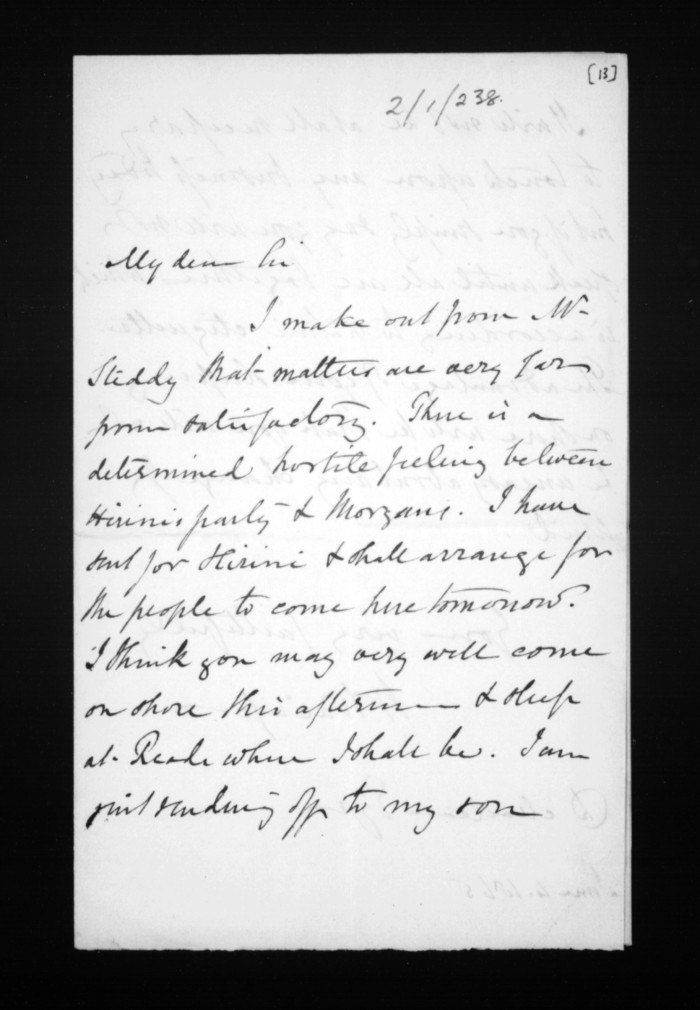 [13]
2/1/238.
My dear Sir
I make out from Mr
Steddy that matters are very far
from satisfactory. There is a
determined hostile feeling between
Hirini's party & Morgan's. I have
sent for Hirini & shall arrange for
the people to come here tomorrow.
I think you may very well come
on shore this afternoon & sleep
at Reads where I shall be. I am
just sending off to my son